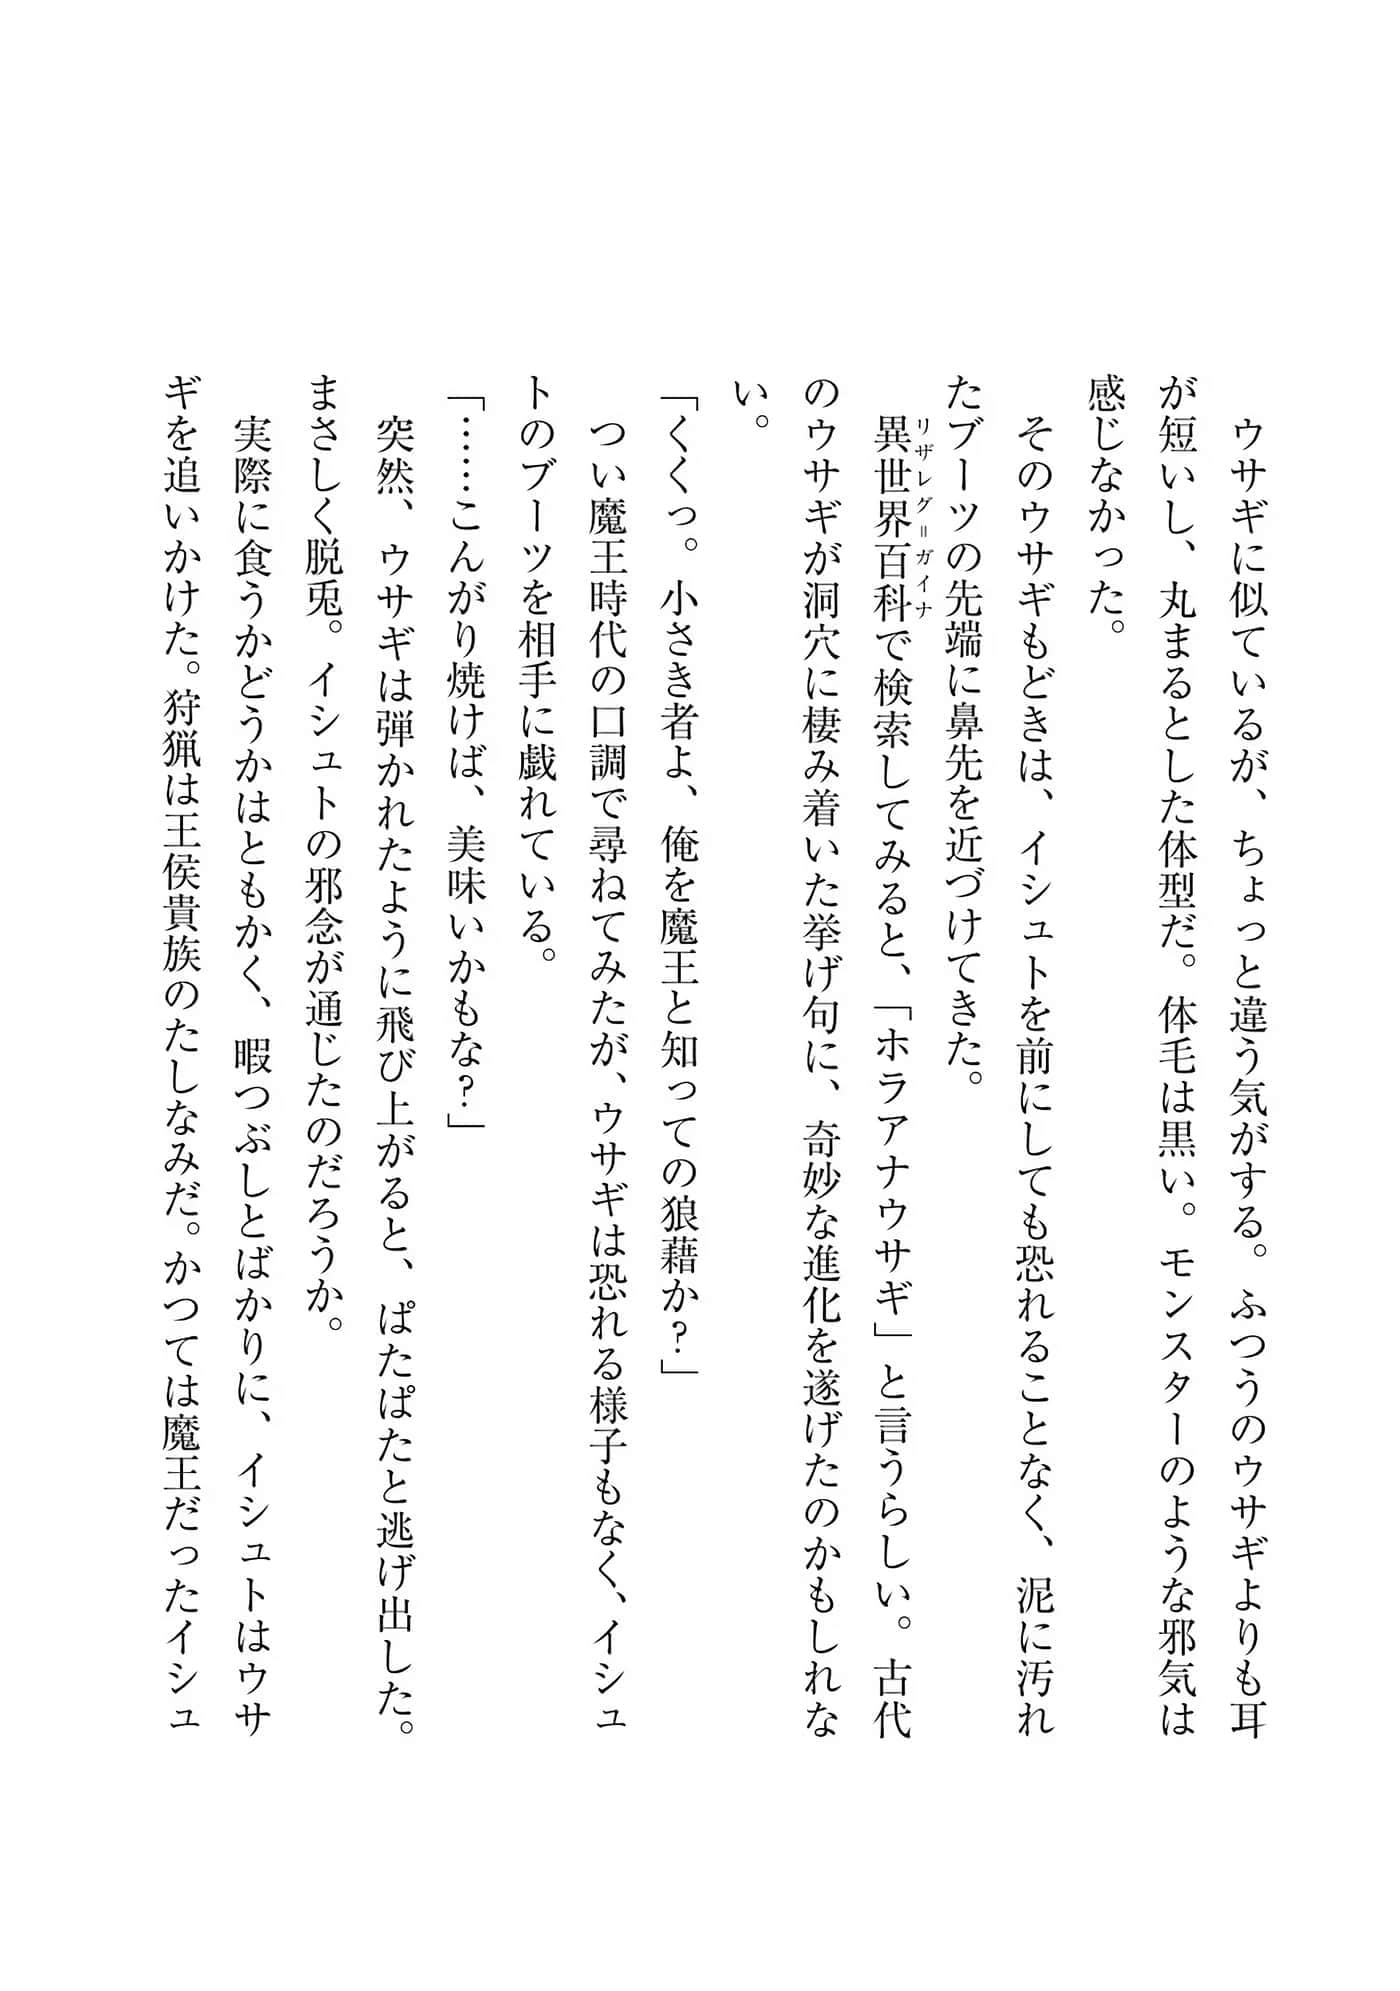 ウサギに似ているが、ちょっと違う気がする。ふつうのウサギよりも耳
が短いし、丸まるとした体型だ。体毛は黒い。モンスターのような邪気は
感じなかった。
　そのウサギもどきは、イシュトを前にしても恐れることなく、泥に汚れ
たブーツの先端に鼻先を近づけてきた。
リザレグ＝ガイナ
　異世界百科で検索してみると、「ホラアナウサギ」と言うらしい。古代
のウサギが洞穴に棲み着いた挙げ句に、奇妙な進化を遂げたのかもしれな
い。
「くくっ。小さき者よ、俺を魔王と知っての狼藉か？」
　つい魔王時代の口調で尋ねてみたが、ウサギは恐れる様子もなく、イシュ
トのブーツを相手に戯れている。
「……こんがり焼けば、美味いかもな？」
　突然、ウサギは弾かれたように飛び上がると、ぱたぱたと逃げ出した。
まさしく脱兎。イシュトの邪念が通じたのだろうか。
　実際に食うかどうかはともかく、暇つぶしとばかりに、イシュトはウサ
ギを追いかけた。狩猟は王侯貴族のたしなみだ。かつては魔王だったイシュ